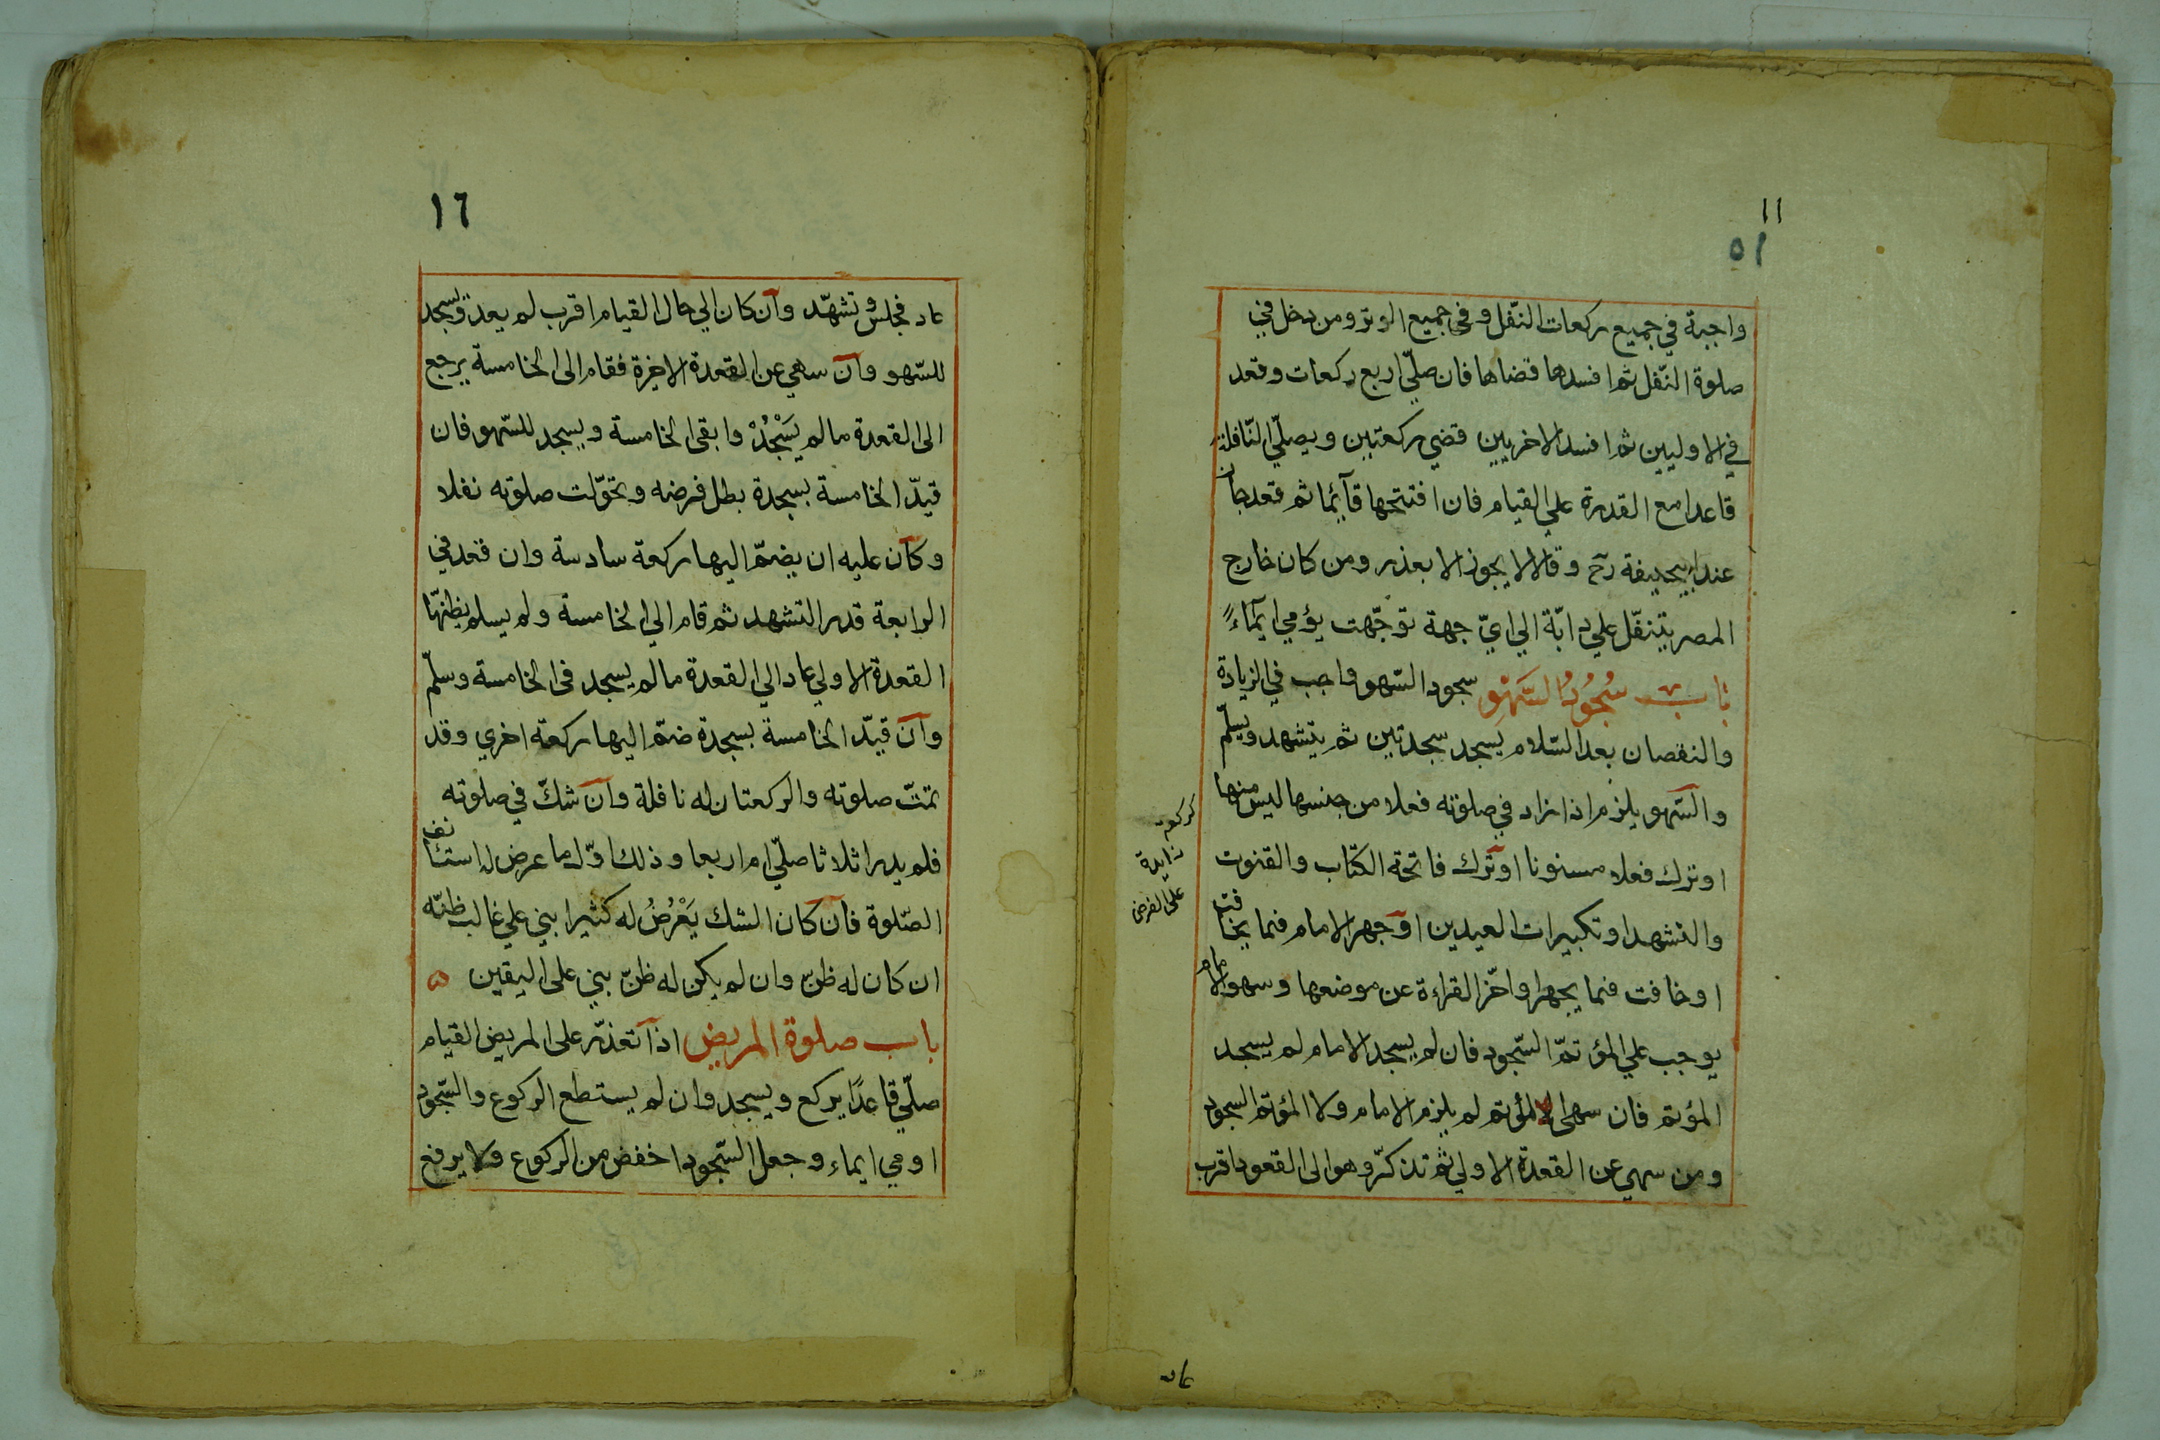 ١١
١٥
واجبة في جميع ركعات النّفل وفى جميع الوتر ومن دخل في
صلوة النّفل ثم افسدها قضاها فان صلّي اربع ركعات وقعد
في الاوليين ثم افسد الاخريين قضي ركعتين ويصلّي النّافلة
قاعدا مع القدرة علي القيام فان افتتحها قآئما ثم قعد جاز
عند ابيحنيفة رح وقالا لا يجوز الا بعذر ومن كان خارج
المصر يتنفّل علي دابّة الي ايّ جهة توجّهت يؤمي ايمآءً
باب سُجُودُ السَّهْوِ سجود السّهو واجب في الزيادة
والنقصان بعد السّلام يسجد سجدتين ثم يتشهد ويسلّم
والسّهو يلزم اذا زاد في صلوته فعلا من جنسها ليس منها
او ترك فعلا مسنونا او ترك فاتحة الكتاب والقنوت
والتشهد او تكبيرات العيدين او جهر الامام فيما يخافت
او خافت فيما يجهر او اخّر القراءة عن موضعها وسهو الامام
يوجب علي المؤتمّ السّجود فان لم يسجد الامام لم يسجد
المؤتم فان سهى المؤتم لم يلزم الامام ولا المؤتم السجود
ومن سهي عن القعدة الاولي ثم تذكّر وهو الى القعود اقرب
كركعة
زايدة
على الفرض
عاد
١٦
عاد فجلس وتشهّد وان كان الي حال القيام اقرب لم يعد ويسجد
للسّهو وان سهي عن القعدة الاخيرة فقام الى الخامسة يرجع
الى القعدة ما لم يَسْجُدْ وابقى الخامسة ويسجد للسّهو فان
قيدّ الخامسة بسجدة بطل فرضه وتحوّلت صلوته نفلا
وكان عليه ان يضمّ اليها ركعة سادسة وان قعد في
الرابعة قدر التشهد ثم قام الي الخامسة ولم يسلم يظنهّا
القعدة الاولي عاد الي القعدة ما لم يسجد فى الخامسة وسلّم
وان قيدّ الخامسة بسجدة ضمّ اليها ركعة اخري وقد
تمتّ صلوته والركعتان له نافلة وان شكّ في صلوته
فلم يدر اثلاثا صلّي ام اربعا وذلك اوّل ما عرض له استئانف
الصّلوة فان كان الشك يَعْرُضُ له كثيرا بني علي غالب ظنّه
ان كان له ظنّ وان لم يكن له ظنّ بني على اليقين
باب صلوة المريض اذا تعذّر على المريض القيام
صلّي قاعدًا يركع ويسجد وان لم يستطع الركوع والسّجود
اومي ايماء وجعل السّجود اخفض من الركوع ولا يرفع